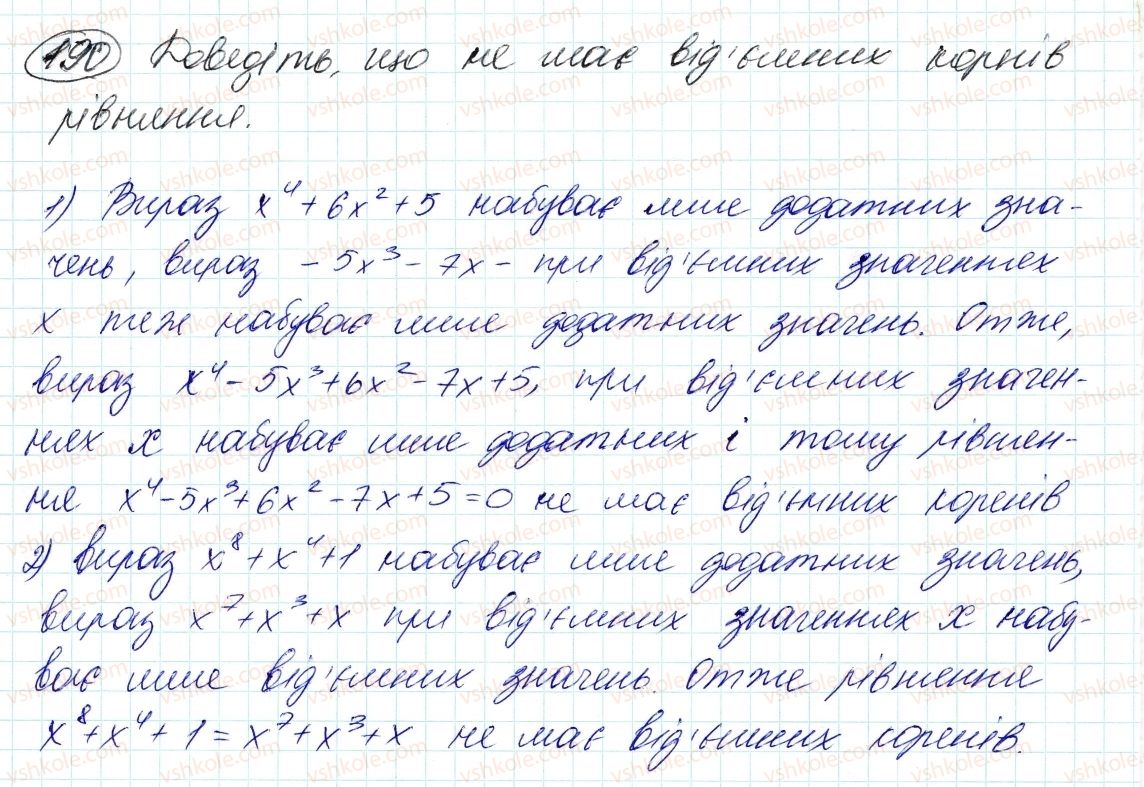 190 Доведіть, що не має від'ємних коренів
рівняння.
1) Вираз x⁴ + 6x² + 5 набуває лише додатних зна-
чень, вираз - 5x³ - 7x - при від'ємних значеннях
x теж набуває лише додатних значень. Отже,
вираз x⁴ - 5x³ + 6x² - 7x + 5, при від'ємних значен-
нях x набуває лише додатних і тому рівнян-
ня x⁴ - 5x³ + 6x² - 7x + 5 = 0 не має від'ємних коренів
2) Вираз x⁸ + x⁴ + 1 набуває лише додатних значень,
вираз x⁷ + x³ + x при від'ємних значеннях x набу-
ває лише від'ємних значень. Отже рівняння
x⁸ + x⁴ + 1 = x⁷ + x³ + x не має від'ємних коренів.
vshkole.com